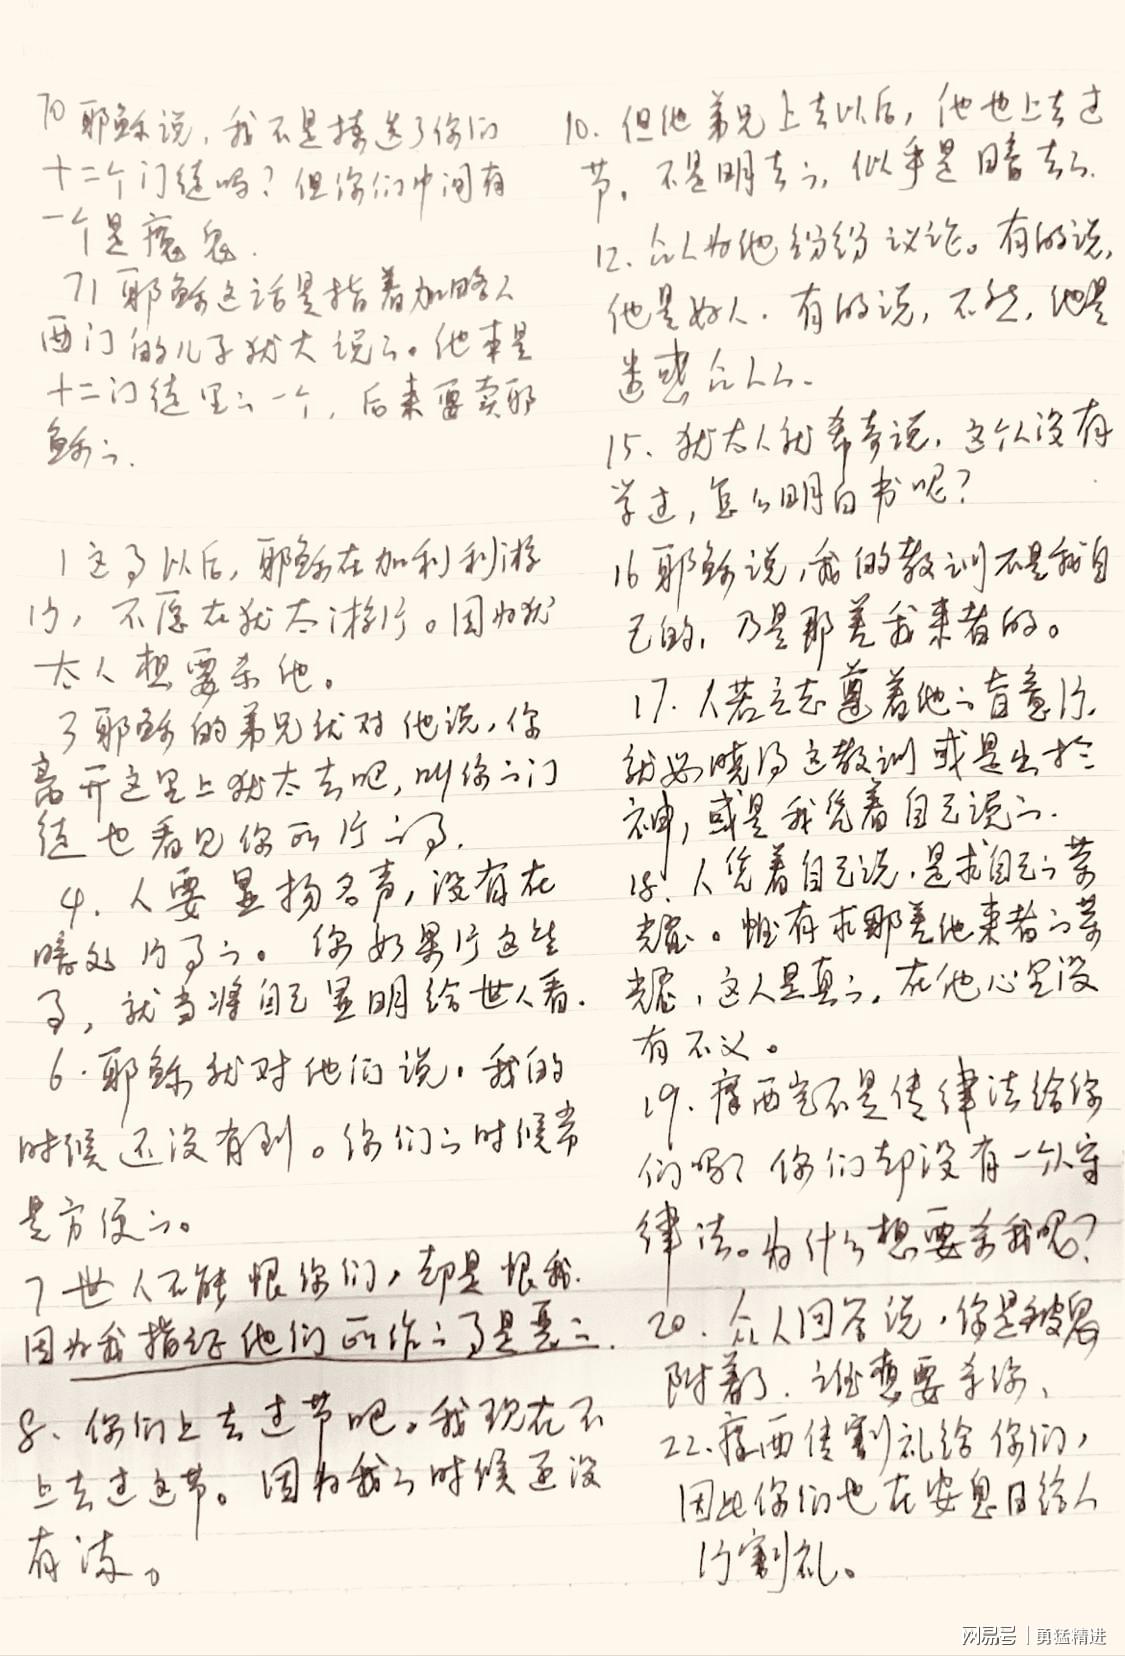 70 耶稣说，我不是拣选了你们
十二个门徒吗？但你们中间有
一个是魔鬼.
71 耶稣这话是指着加略人
西门的儿子犹大说的。他本是
十二门徒里的一个，后来要卖耶
稣的.
1 这事以后，耶稣在加利利游
行，不愿在犹太游行。因为犹
太人想要杀他。
3 耶稣的弟兄就对他说，你
离开这里上犹太去吧，叫你的门
徒也看见你所行的事.
4. 人要显扬名声，没有在
暗处行事的。你如果行这些
事，就当将自己显明给世人看.
6. 耶稣就对他们说。我的
时候还没有到。你们的时候常
是方便的。
7 世人不能恨你们，却是恨我.
因为我指证他们所作的事是恶的.
8、你们上去过节吧。我现在不
上去过这节。因为我的时候还没
有满。
10. 但他弟兄上去以后，他也上去过
节，不是明去的，似乎是暗去的.
12. 众人为他纷纷议论。有的说，
他是好人. 有的说，不然，他是
迷惑众人的.
15、犹太人就希奇说，这个人没有
学过，怎么明白书呢？
16 耶稣说，我的教训不是我自
己的，乃是那差我来者的。
17. 人若立志遵着他的旨意行，
就必晓得这教训或是出于
神，或是我凭着自己说的.
18. 人凭着自己说，是求自己的荣
光耀。惟有求那差他来者的荣
光耀，这人是真的，在他心里没
有不义。
19. 摩西岂不是传律法给你
们吗？你们却没有一个人守
律法。为什么想要杀我呢？
20. 众人回答说，你是被鬼
附着了. 谁想要杀你、
22. 摩西传割礼给你们，
因此你们也在安息日给人
行割礼。
网易号 | 勇猛精进